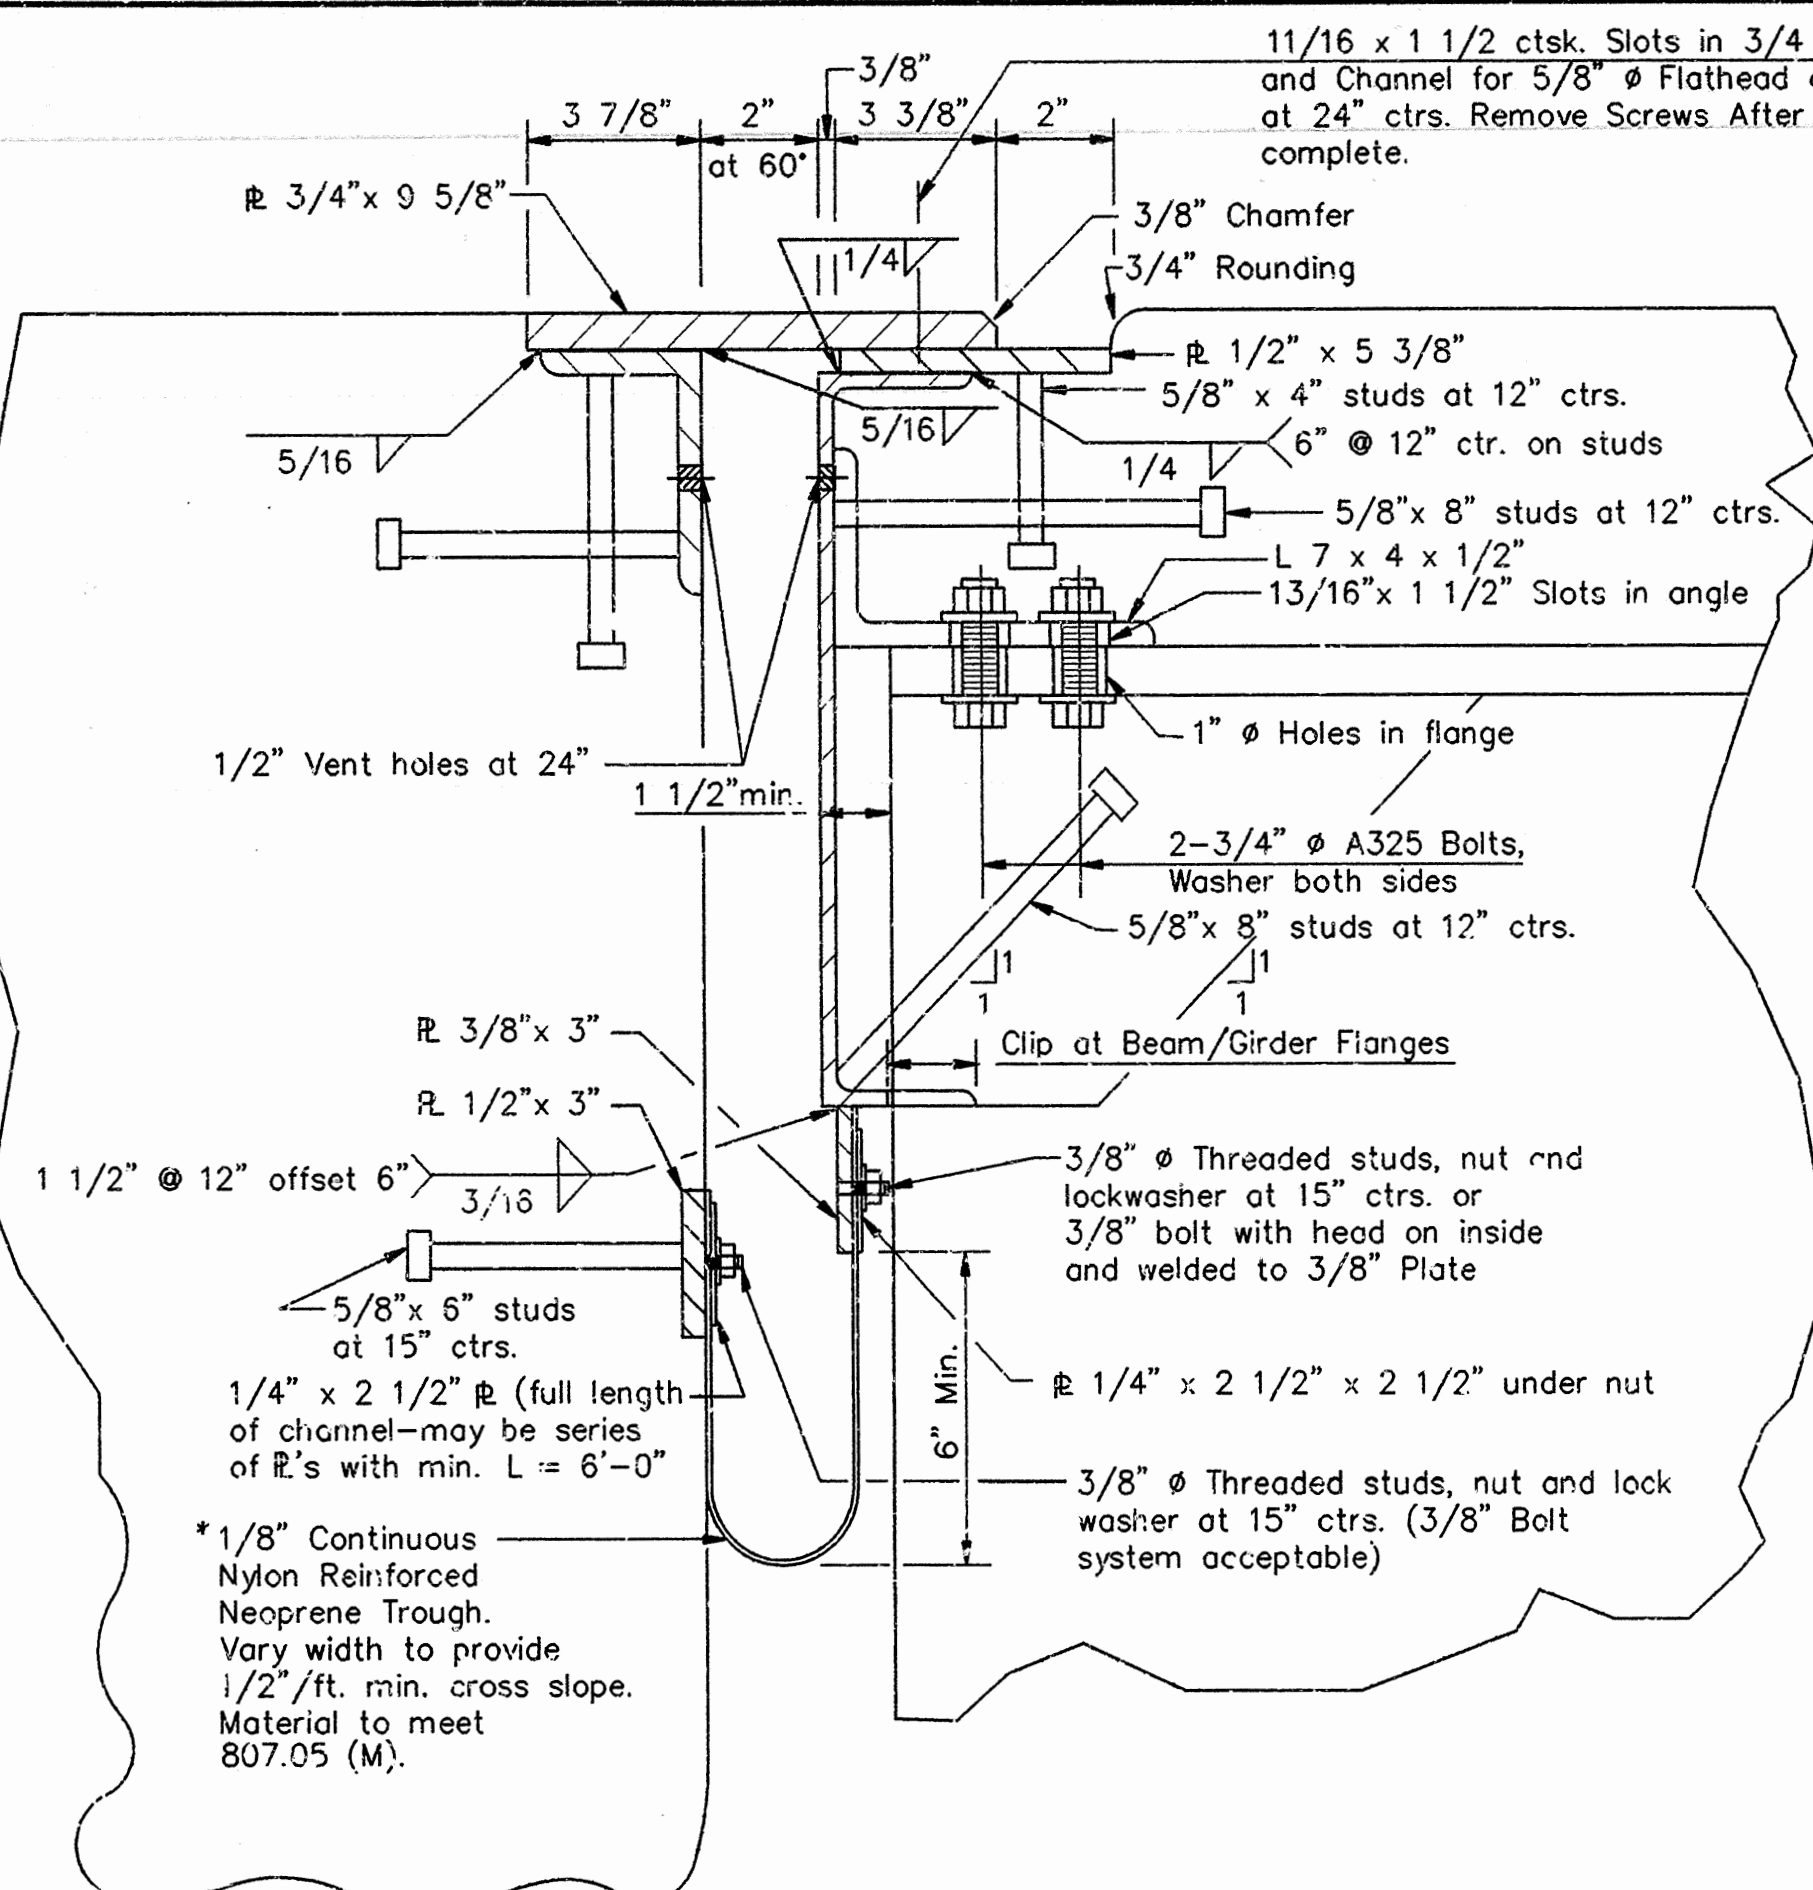 11/16 x 1 1/2 ctsk. Slots in 3/4
and Channel for 5/8" ø Flathead
at 24" ctrs. Remove Screws After
complete.
3/8"
3 7/8"
2"
at 60°
3 3/8"
2"
℄ 3/4"x 9 5/8"
3/8" Chamfer
1/4
3/4" Rounding
℄ 1/2" x 5 3/8"
5/8" x 4" studs at 12" ctrs.
5/16
5/16
6" @ 12" ctr. on studs
1/4
5/8"x 8" studs at 12" ctrs.
L 7 x 4 x 1/2"
13/16"x 1 1/2" Slots in angle
1" ø Holes in flange
1/2" Vent holes at 24"
1 1/2"min.
2-3/4" ø A325 Bolts,
Washer both sides
5/8"x 8" studs at 12" ctrs.
1
1
1
1
℄ 3/8"x 3"
Clip at Beam/Girder Flanges
℄ 1/2"x 3"
1 1/2" @ 12" offset 6"
3/16
3/8" ø Threaded studs, nut and
lockwasher at 15" ctrs. or
3/8" bolt with head on inside
and welded to 3/8" Plate
5/8"x 6" studs
at 15" ctrs.
1/4" x 2 1/2" ℄ (full length
of channel-may be series
of ℄'s with min. L = 6'-0"
6" Min.
℄ 1/4" x 2 1/2" x 2 1/2" under nut
3/8" ø Threaded studs, nut and lock
washer at 15" ctrs. (3/8" Bolt
system acceptable)
*1/8" Continuous
Nylon Reinforced
Neoprene Trough.
Vary width to provide
1/2"/ft. min. cross slope.
Material to meet
807.05 (M).